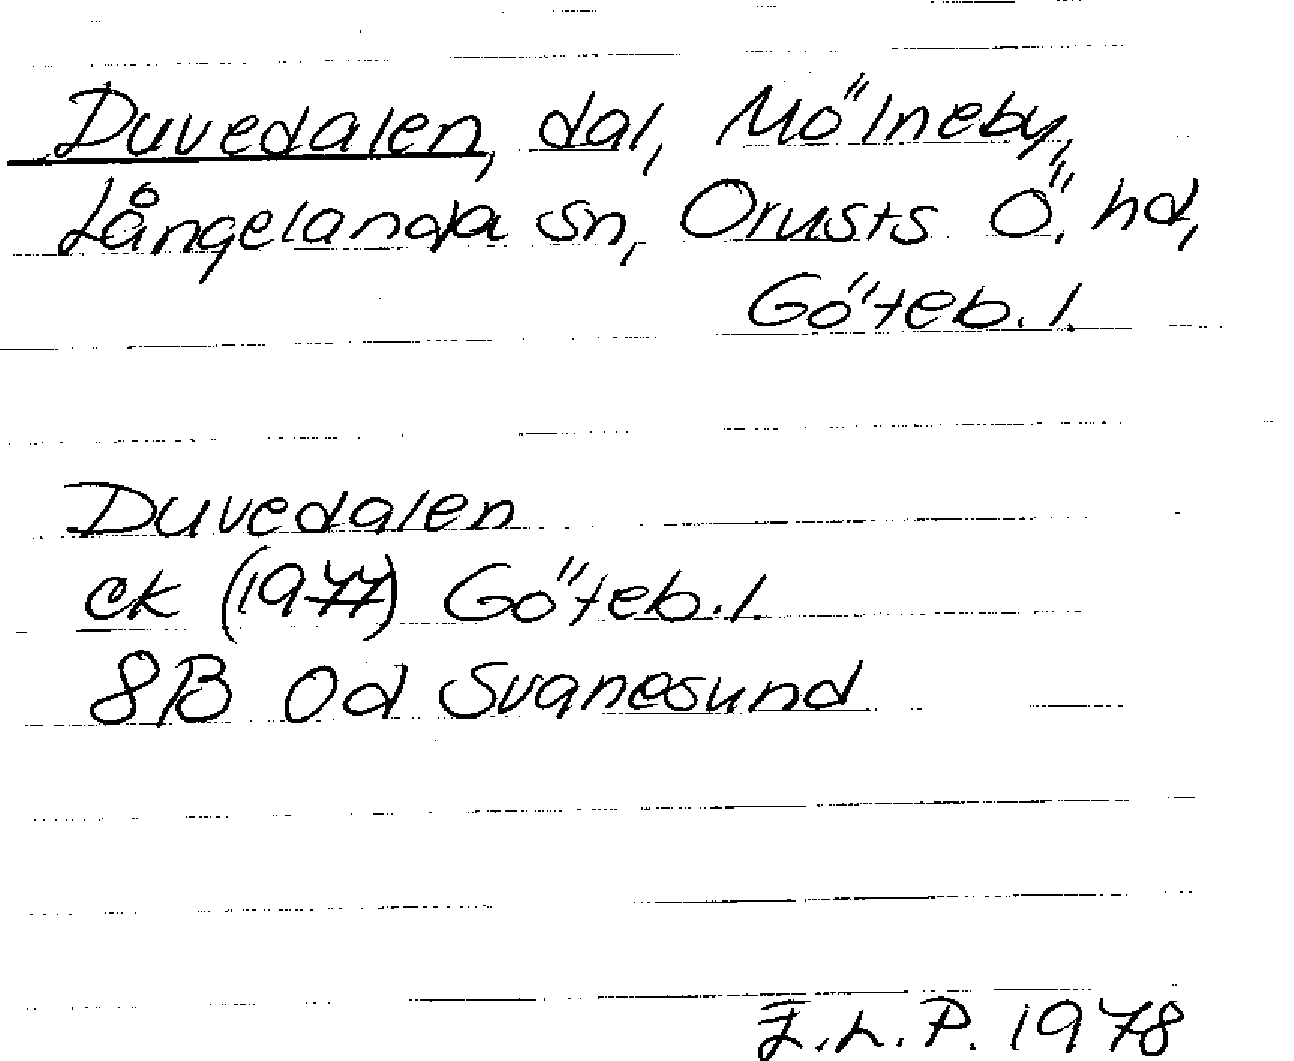 Duvedalen, dal, Mölneby,
Långelanda sn, Orusts Ö. hd,
Göteb. l.
Duvedalen
ek (1977) Göteb. l.
8B 0d Svanesund
I.L.P. 1978